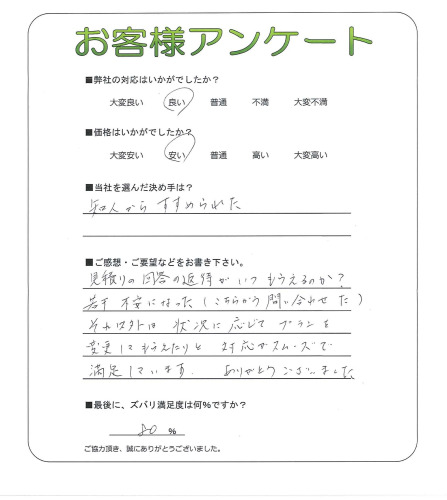 お客様アンケート
■弊社の対応はいかがでしたか?
大変良い 良い 普通 不満 大変不満
■価格はいかがでしたか?
大変安い 安い 普通 高い 大変高い
■当社を選んだ決め手は?
知人からすすめられた
■ご感想・ご要望などをお書き下さい。
見積りの回答の返待がいつもらえるのか?
若干不安になった(こちらから問い合わせた)
それ以外は状況に応じてプランを
変更してもらえたりと対応がスムーズで
満足しています. ありがとうございました
■最後に、ズバリ満足度は何%ですか?
80 %
ご協力頂き、誠にありがとうございました。